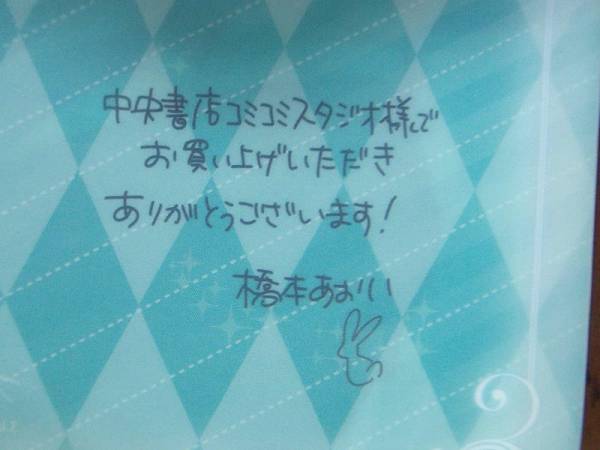 中央書店コミコミスタジオ様で
お買い上げいただき
ありがとうございます!
橋本あおい